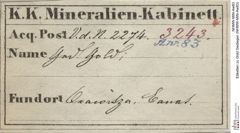 K.K. Mineralien-Kabinett
Acq. Post N.d.N. 2274. 3243
Anr. 83
Name Ged Gold.
Fundort Oravitza, Banat.